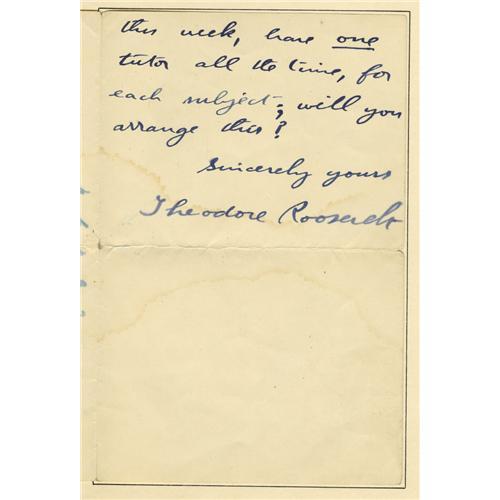 this week, have one
tutor all the time, for
each subject; will you
arrange this?
Sincerely yours
Theodore Roosevelt